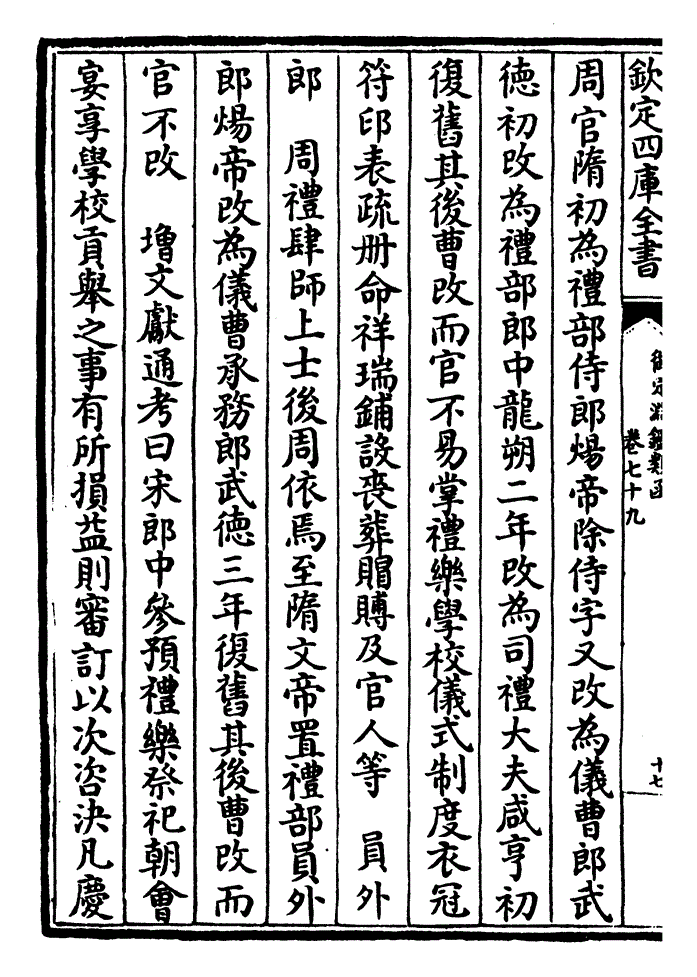 欽定四庫全書
御定淵鑑類函
卷七十九
十七
周官隋初為禮部侍郎煬帝除侍字又改為儀曹郎武
德初改為禮部郎中龍朔二年改為司禮大夫咸亨初
復舊其後曹改而官不易掌禮樂學校儀式制度衣冠
符印表疏册命祥瑞鋪設喪葬賵賻及官人等　員外
郎　周禮肆師上士後周依焉至隋文帝置禮部員外
郎煬帝改為儀曹承務郎武德三年復舊其後曹改而
官不改　增文獻通考曰宋郎中參預禮樂祭祀朝會
宴享學校貢舉之事有所損益則審訂以次咨決凡慶